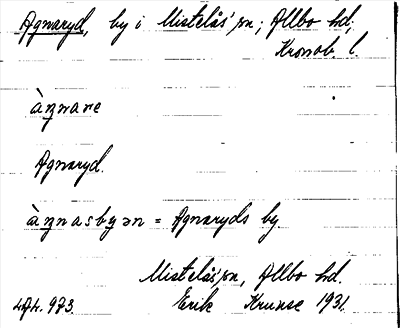 Agnaryd, by i Mistelås' sn; Allbo hd,
Kronob. l.
àŋnare
Agnaryd.
àŋnasbyən = Agnaryds by
Mistelås' sn, Allbo hd.
494. 973. Erik Krunse 1931